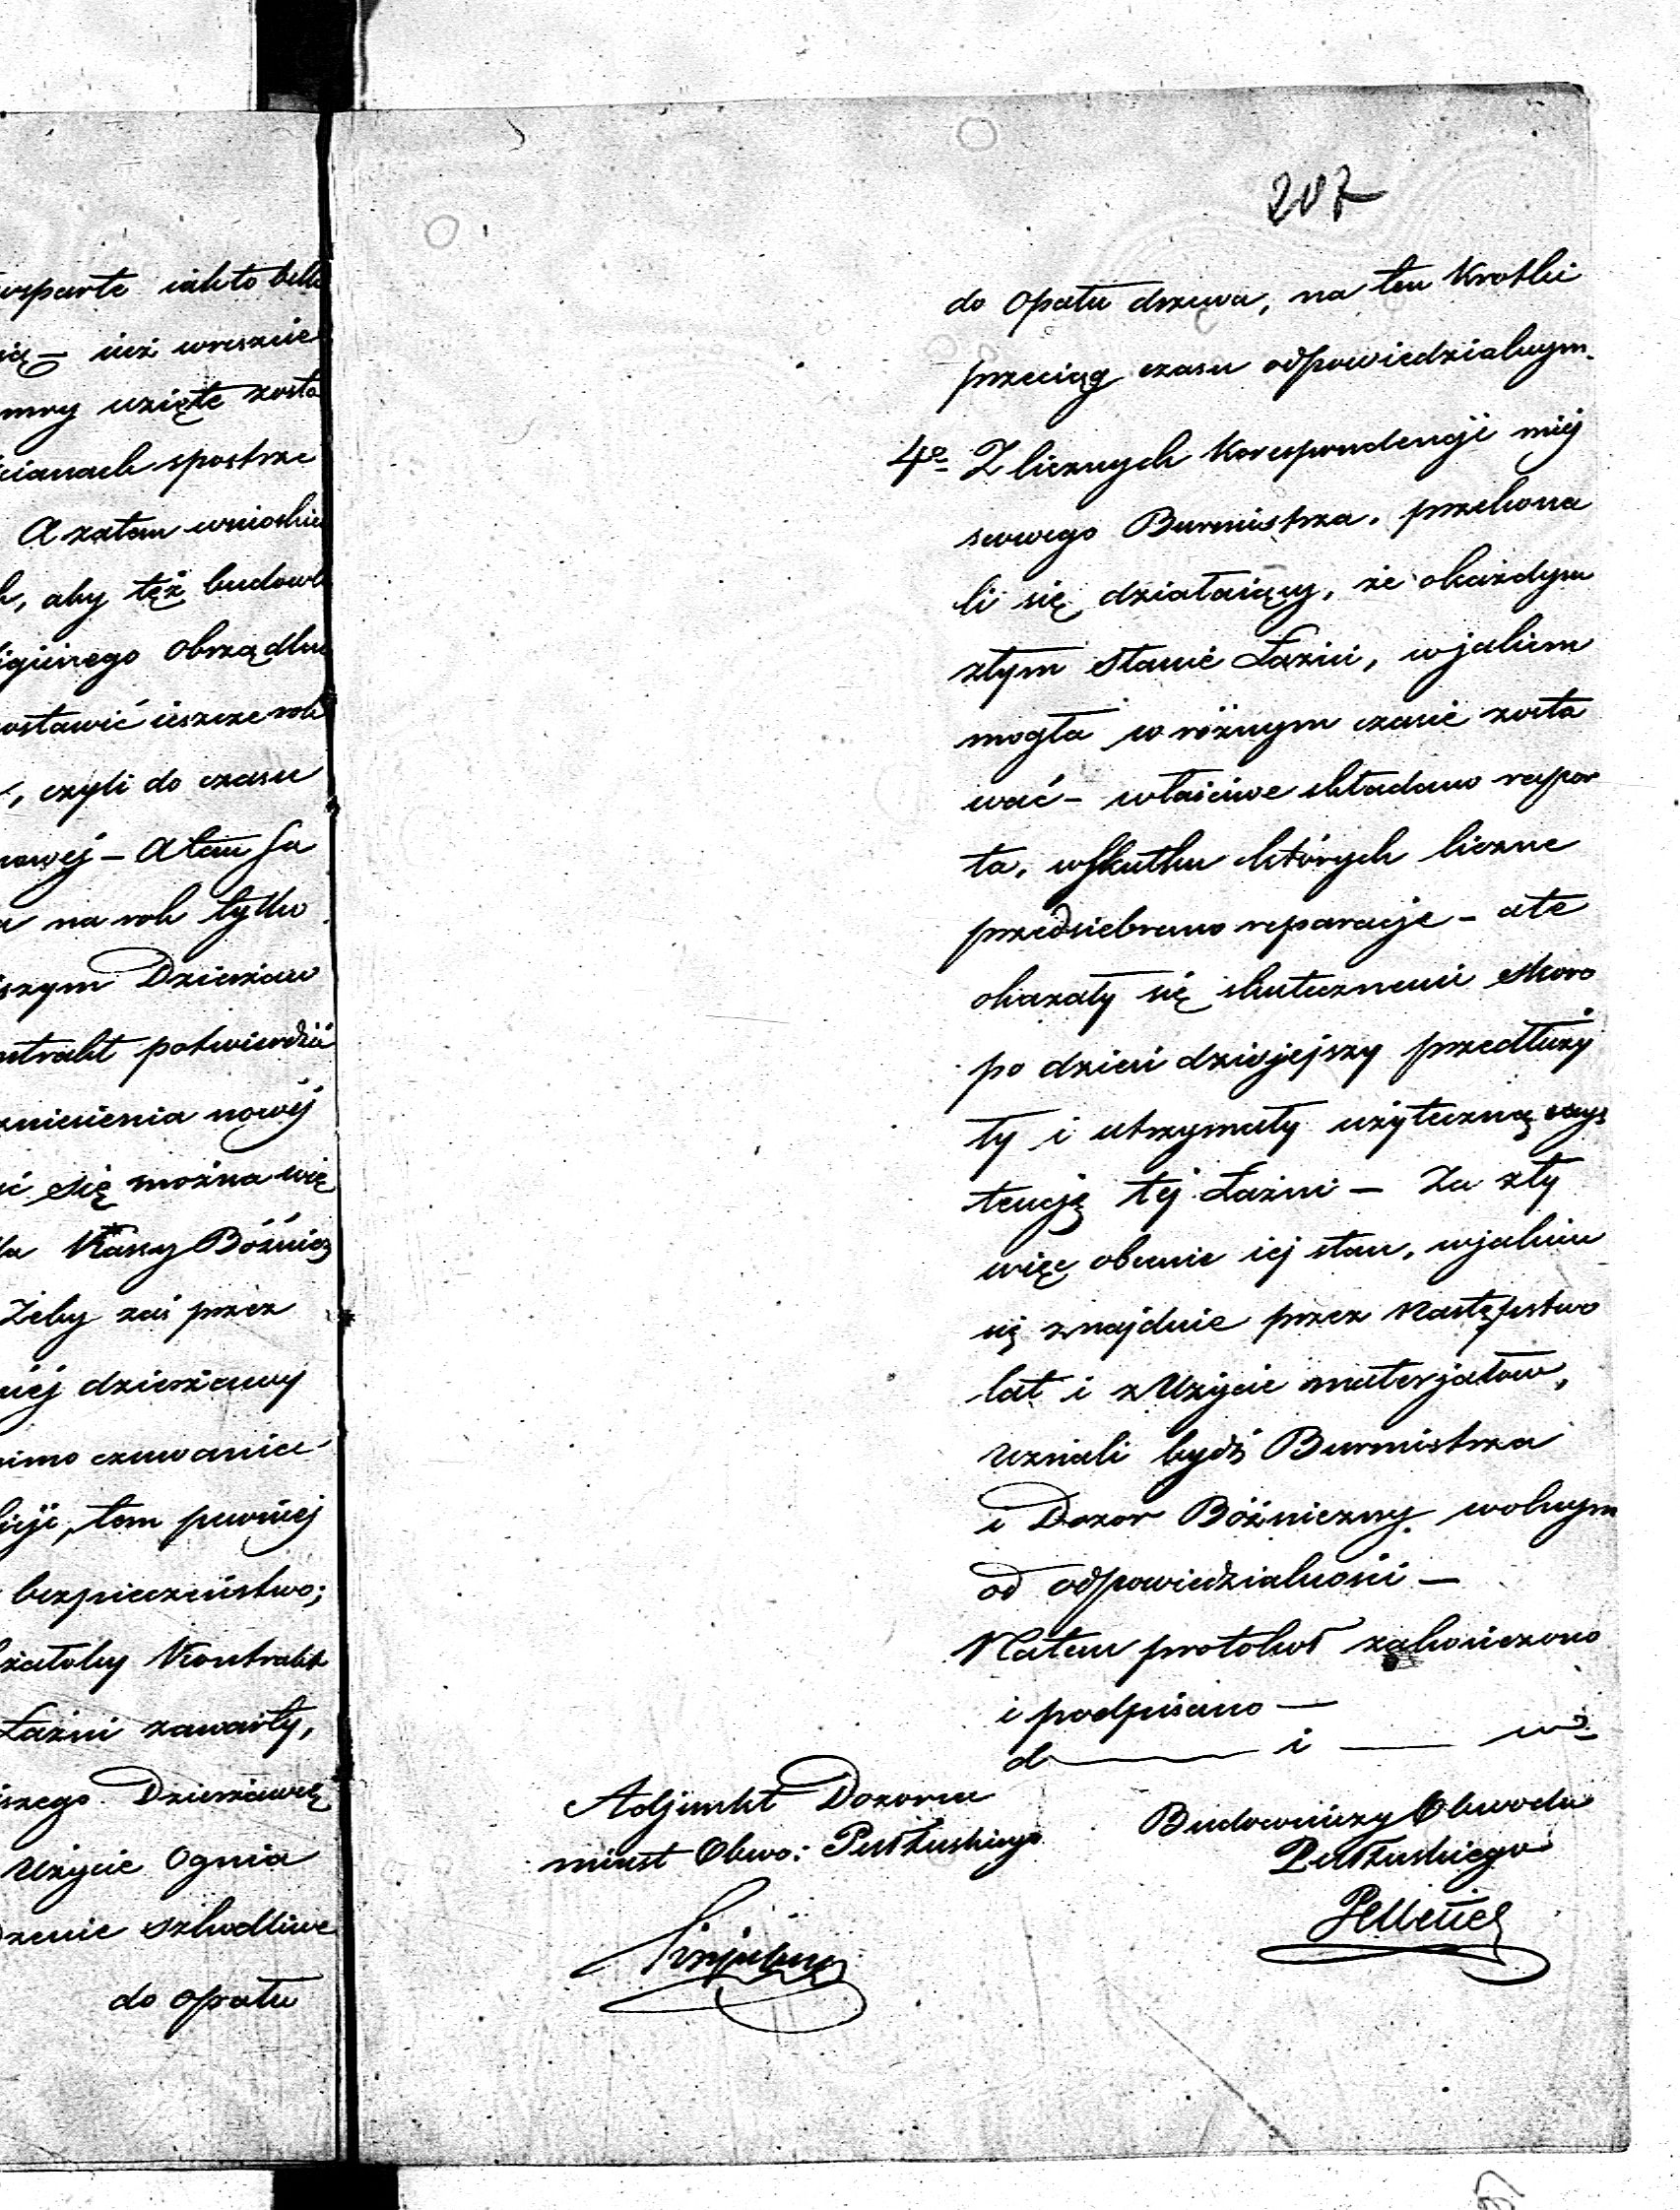 wsparte iakto belk
się – iuż wreszcie
mry uzięte zosta
ścianach spostrze
A zatem wnioskie
, aby też budowl
igiinego Obrządku
ostawić ieszcze rok
, czyli do czasu
nowej – Atem sa
na rok tylko
szym Dzierżaw
ntrakt potwierdzić
zniesienia nowej
ć się można wię
la Kassy Bóżnicz
Żeby zaś przez
niej dzierżawy
mimo czuwania
licji, tem pewniej
bezpieczeństwo;
żałoby Kontrakt
Łaźni zawarły,
szego Dzierżawcę
użycie Ognia
dzenie szkodliwe
do opału
207
do Opału drzewa, na ten Krotki
przeciąg czasu odpowiedzialnym.
4o Z licznych Korespondencji miej
scowego Burmistrza, przekona
li się działaiący, że okażdym
złym Stanie Łaźni, w jakiem
mogła w różnym czasie zosta
wać – właściwe składano rapor
ta, w skutku których liczne
przedsiebrano reparacje – a te
okazały się skutecznemi skoro
po dzień dzisiejszy przedłuży
ły i utrzymały użyteczną exys
tencję tej Łaźni – Za zły
więc obecnie iej stan, w jakim
się znajduie przez Następstwo
lat i z Użycie materjałów,
uznali bydź Burmistrza
i Dozor Bóżniczny wolnym
od odpowiedzialności –
Na tem protokoł zakończono
i podpisano –
d i w
Adjunkt Dozorca
miast Obwo: Pułtuskiego
Budowniczy Obwodu
Pułtuskiego